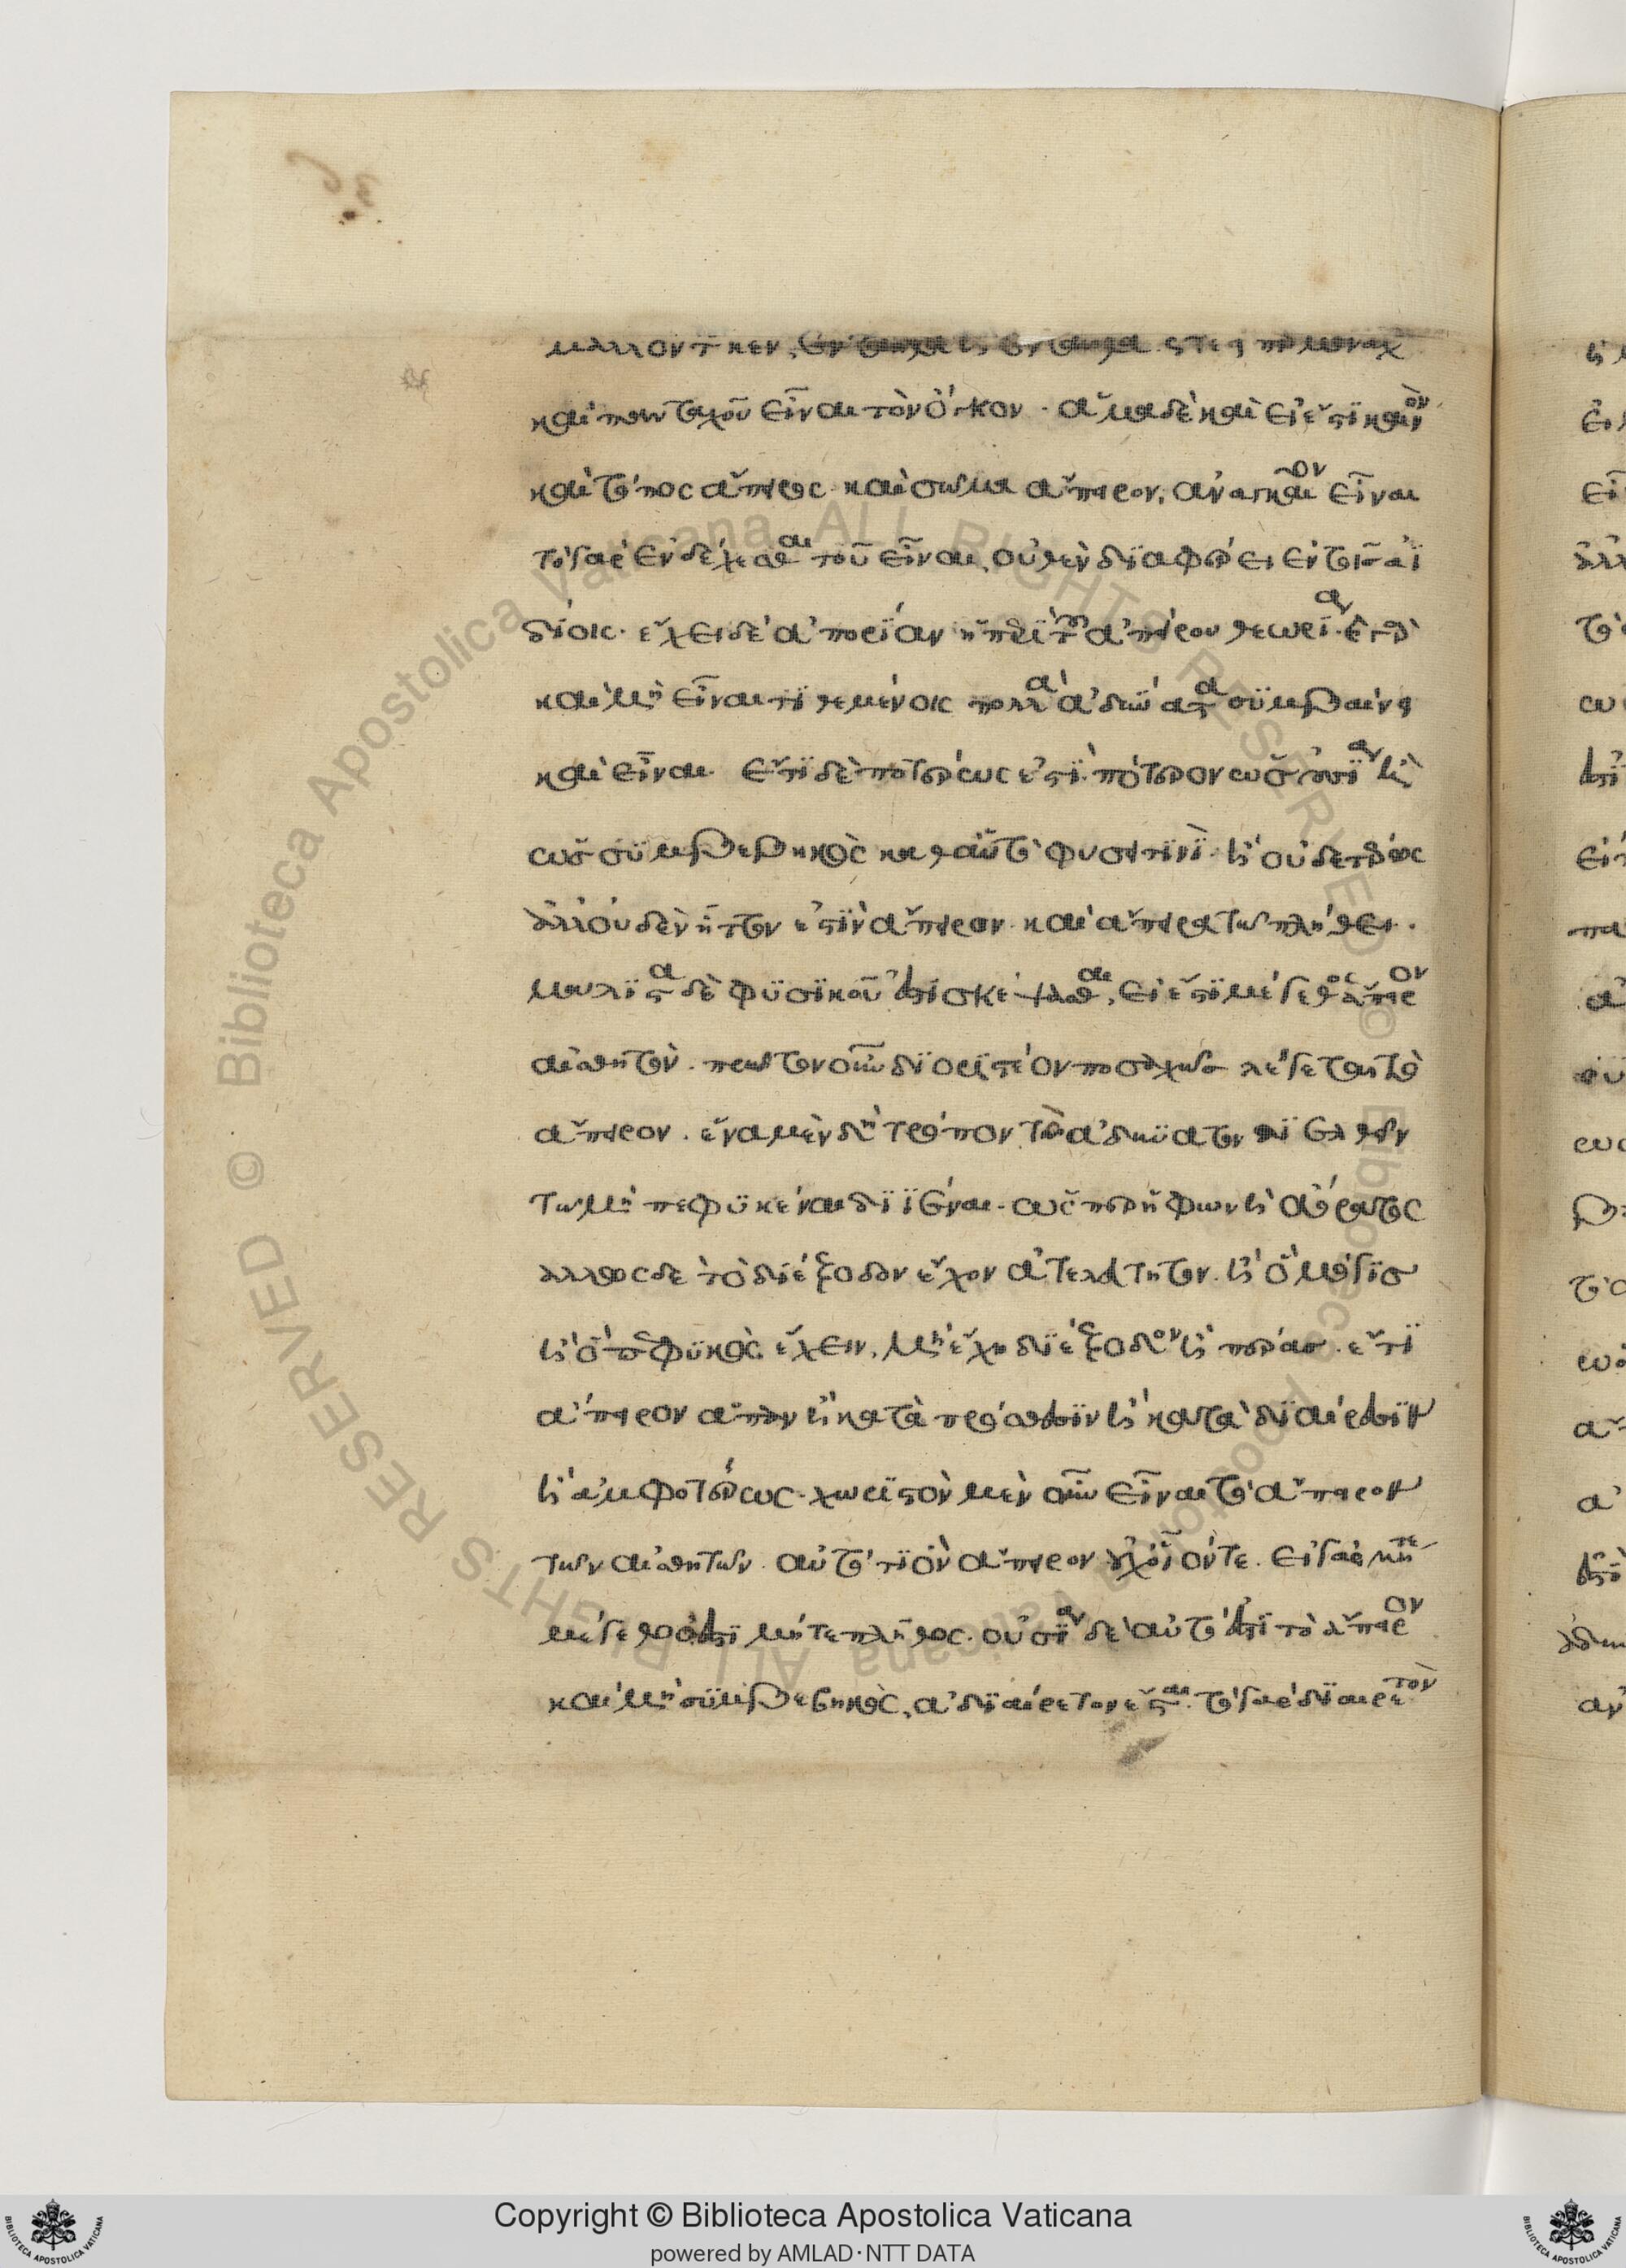 μᾶλλον τ κεν, ἐνταῦθα ἢ ἐνταῦθα. ὥστ εἰ περ μοναχ
καὶ πανταχοῦ εἶναι τὸν ὄγκον. ἅμα δὲ καὶ εἰ ἔστι καινὸν
καὶ τόπος ἄπειρος. καὶ σῶμα ἄπειρον, ἀναγκαῖον εἶναι
τὸ γὰρ ἐνδέχεσθαι τοῦ εἶναι, οὐθὲν διαφέρει ἐν τοῖς ἀϊ
δίοις. ἔχει δὲ ἀπορίαν ἡ περὶ τοῦ ἀπείρου θεωρία. καὶ γὰρ
καὶ μὴ εἶναι τιθεμένοις πολλὰ ἀδύνατα συμβαίνει
καὶ εἶναι. ἔτι δὲ ποτέρως ἐστὶ. πότερον ὡς οὐσία ἢ
ὡς συμβεβηκὸς καθ αὑτὸ φύσει τινὶ. ἢ οὐδετέρως
ἀλλ οὐδὲν ἧττον ἐστὶν ἄπειρον. καὶ ἄπειρα τῷ πλήθει.
μάλιστα δὲ φυσικοῦ ἐστὶ σκέψασθαι, εἰ ἔστι μέγεθος ἄπειρον
αἰσθητὸν. πρῶτον οὖν διοριστέον ποσαχῶς λέγεται τὸ
ἄπειρον. ἕνα μὲν δὴ τρόπον τὸ ἀδύνατον διελθεῖν
τῷ μὴ πεφυκέναι διϊέναι. ὥσπερ ἡ φωνὴ ἀόρατος
ἄλλως δὲ τὸ διέξοδον ἔχον ἀτελεύτητον. ἢ ὃ μόγις
ἢ ὃ πεφυκὸς ἔχειν, μὴ ἔχει διέξοδον ἢ πέρας. ἔτι
ἄπειρον ἅπαν ἢ κατὰ πρόσθεσιν ἢ κατὰ διαίρεσιν
ἢ ἀμφοτέρως. χωριστὸν μὲν οὖν εἶναι τὸ ἄπειρον
τῶν αἰσθητῶν. αὐτό τι ὂν ἄπειρον οὐχ οἷόν τε. εἰ γὰρ μήτε
μέγεθος ἐστὶ μήτε πλῆθος. οὐσία δὲ αὐτὸ ἐστὶ τὸ ἄπειρον
καὶ μὴ συμβεβηκὸς, ἀδιαίρετον ἔσται. τὸ γὰρ διαιρετὸν
Copyright © Biblioteca Apostolica Vaticana
powered by AMLAD·NTT DATA